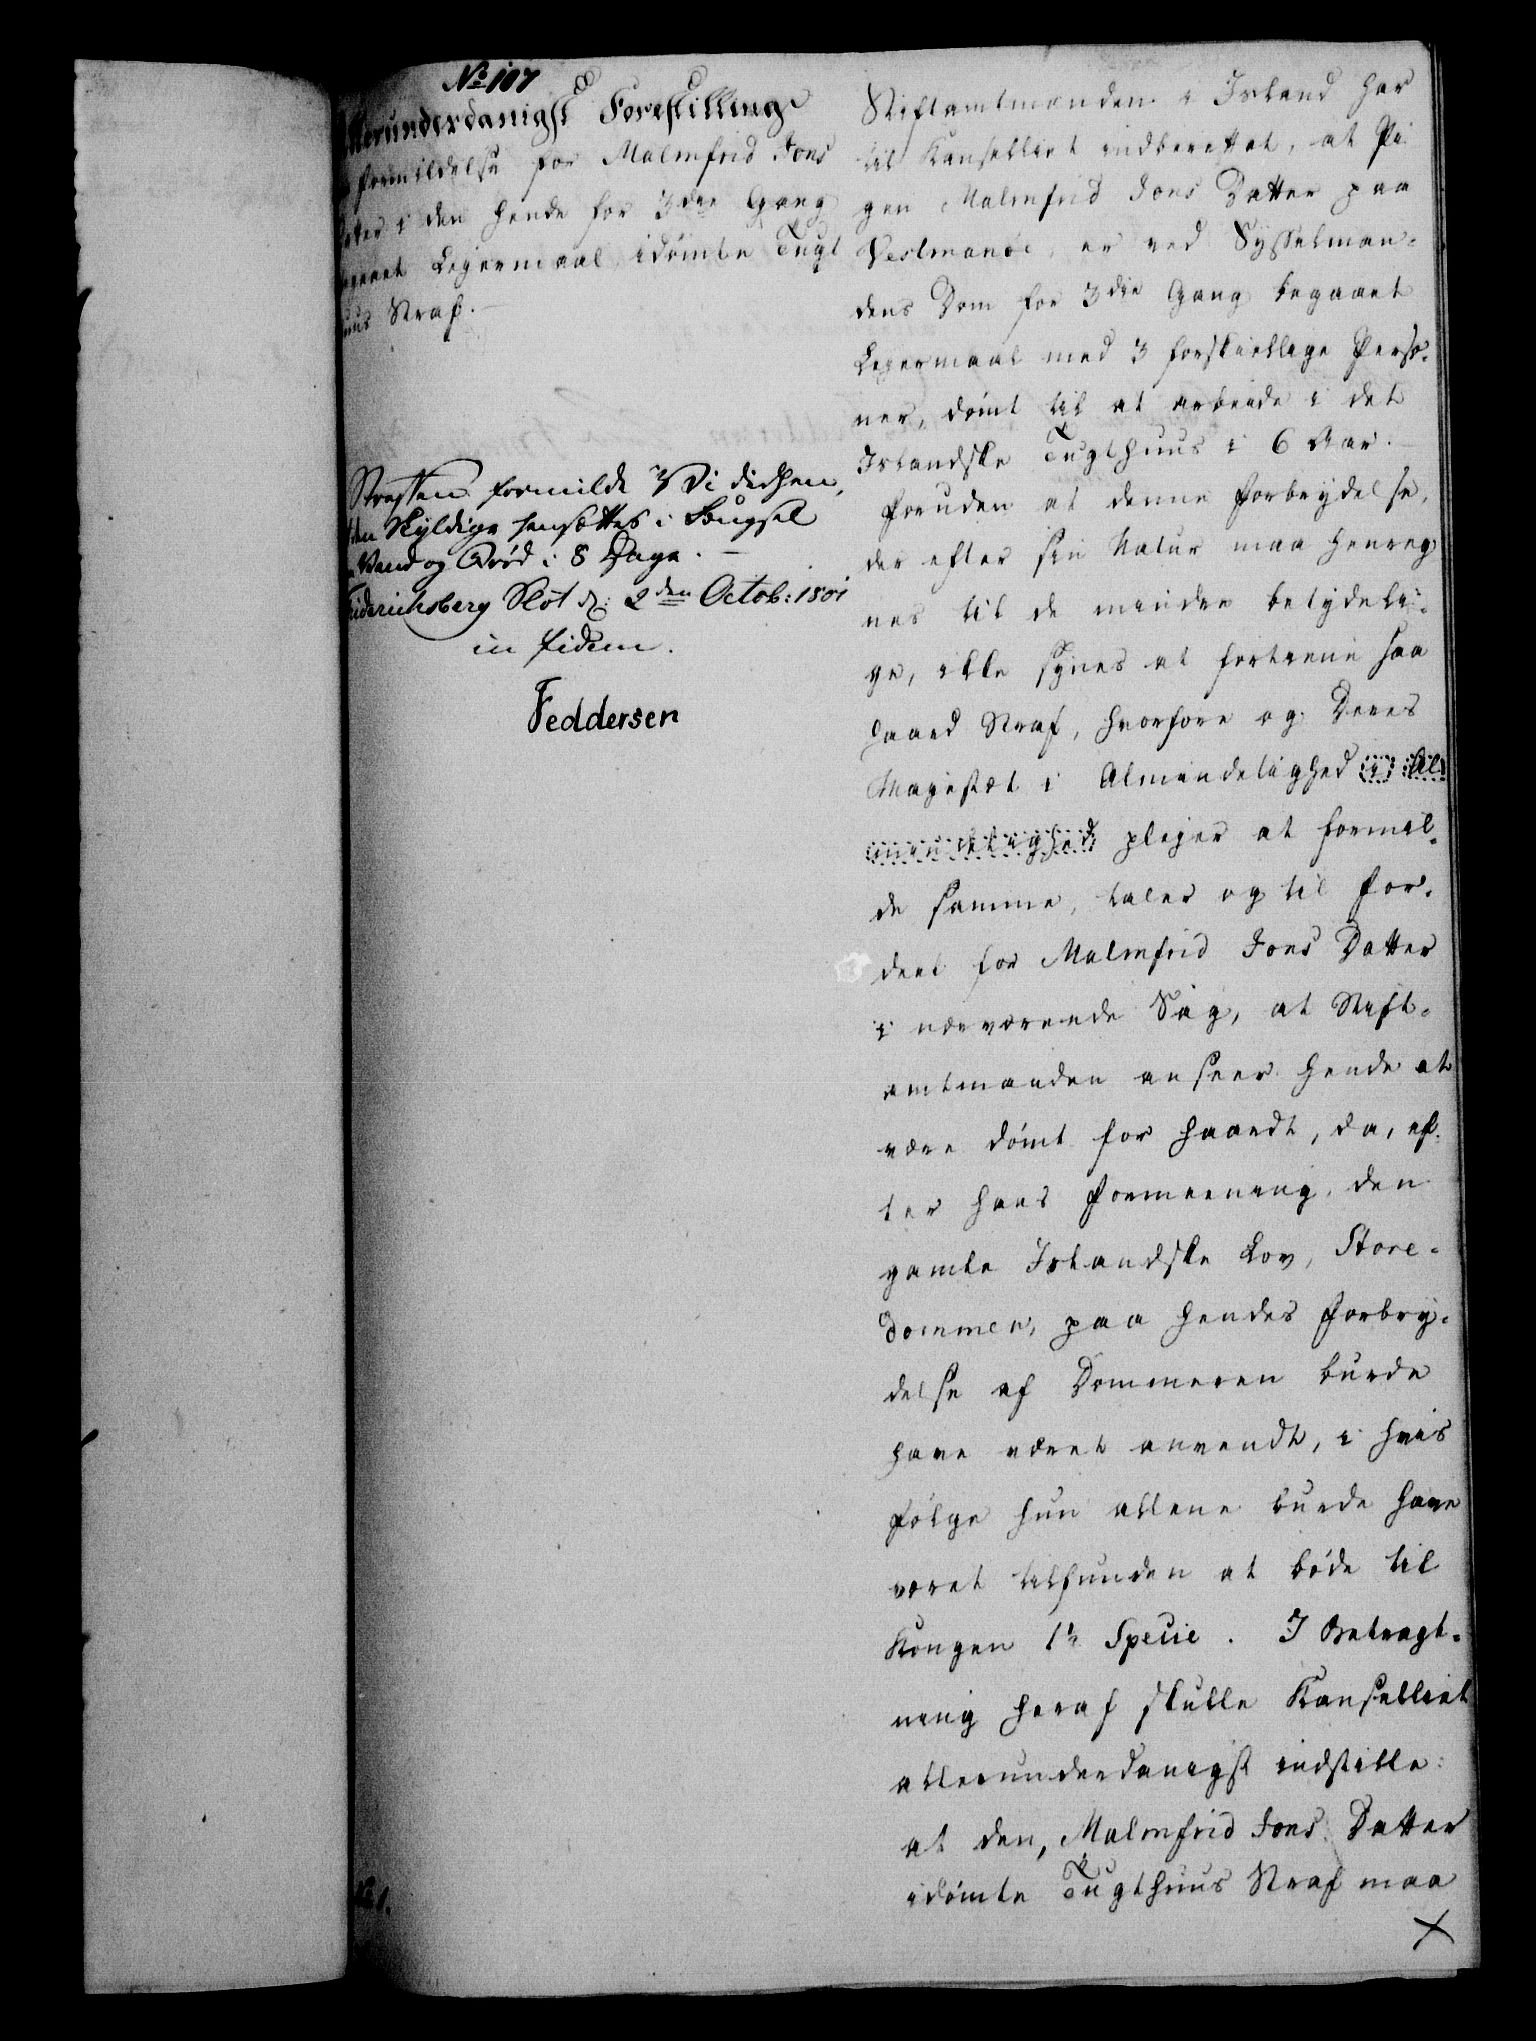 No 107
Allerunderdanigst Forestilling
formildelse for Malmfrid Jons
Datter i den hende for 3die Gang
begaaet Leiermaal idømte Tugt
huus Straf.
Straffen formilde Vi derhen,
den Skyldige hensættes i Fængsel
Vand og Brød i 8 Dage.
Friderichsberg Slot d: 2den Octob: 1801
in fidem.
Feddersen
No 1.
Stiftamtmanden i Island har
til Kanselliet indberettet, at Pi
gen Malmfrid Jons Datter paa
Vestmanöe, er ved Sysselman-
dens Dom for 3die Gang begaaet
Leiermaal med 3 forskiellige Perso-
ner, dömt til at arbeide i det
Islandske Tugthuus i 6 Aar.
Foruden at denne Forbrydelse,
der efter sin Natur maa henreg
nes til de mindre betydeli-
ge, ikke synes at fortiene saa
haard Straf, hvorfore og Deres
Majestæt i Almindelighed i Al
mindelighed plejer at formil-
de samme, taler og til For-
deel for Malmfrid Jons Datter
i nærværende Sag, at Stift-
amtmanden anseer hende at
være dömt for haardt, da, ef-
ter hans Formeening, den
gamle Islandske Lov, Store-
dommen, paa hendes Forbry-
delse af Dommeren burde
have været anvendt, i hvis
Fölge hun allene burde have
været tilfunden at böde til
Kongen Specie. I Betragt-
ning heraf skulle Kanselliet
allerunderdanigst indstille:
at den, Malmfrid Jons Datter
idömte Tugthuus Straf maa